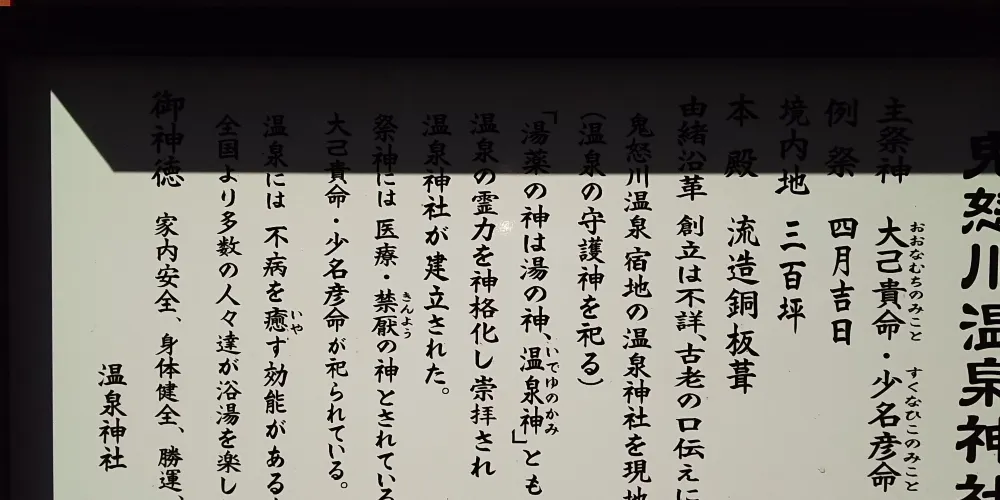 鬼怒川温泉神社
主祭神 大己貴命・少名彦命
おおなむちのみこと すくなひこのみこと
例祭 四月吉日
境内地 三百坪
本殿 流造銅板葺
由緒沿革 創立は不詳、古老の口伝えに
鬼怒川温泉宿地の温泉神社を現地
(温泉の守護神を祀る)
「湯薬の神は湯の神、温泉神」とも
いでゆのかみ
温泉の霊力を神格化し崇拝され
温泉神社が建立された。
祭神には 医療・禁厭の神とされている
きんよう
大己貴命・少名彦命が祀られている。
温泉には 不病を癒す効能がある
いや
全国より多数の人々達が浴湯を楽し
御神徳 家内安全、身体健全、勝運、
温泉神社